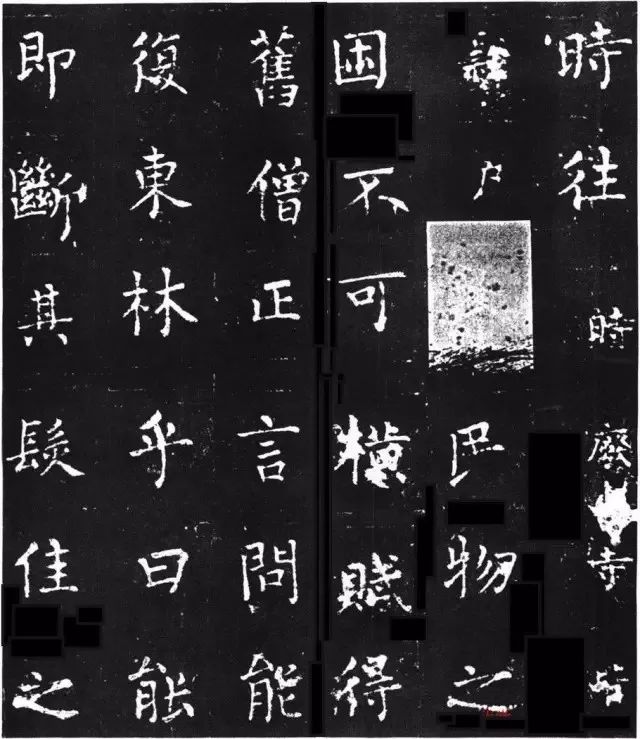 時往時廢寺
戶物之
困不可横賦得
舊僧正言問能
復東林乎曰能
即斷其髮佳之